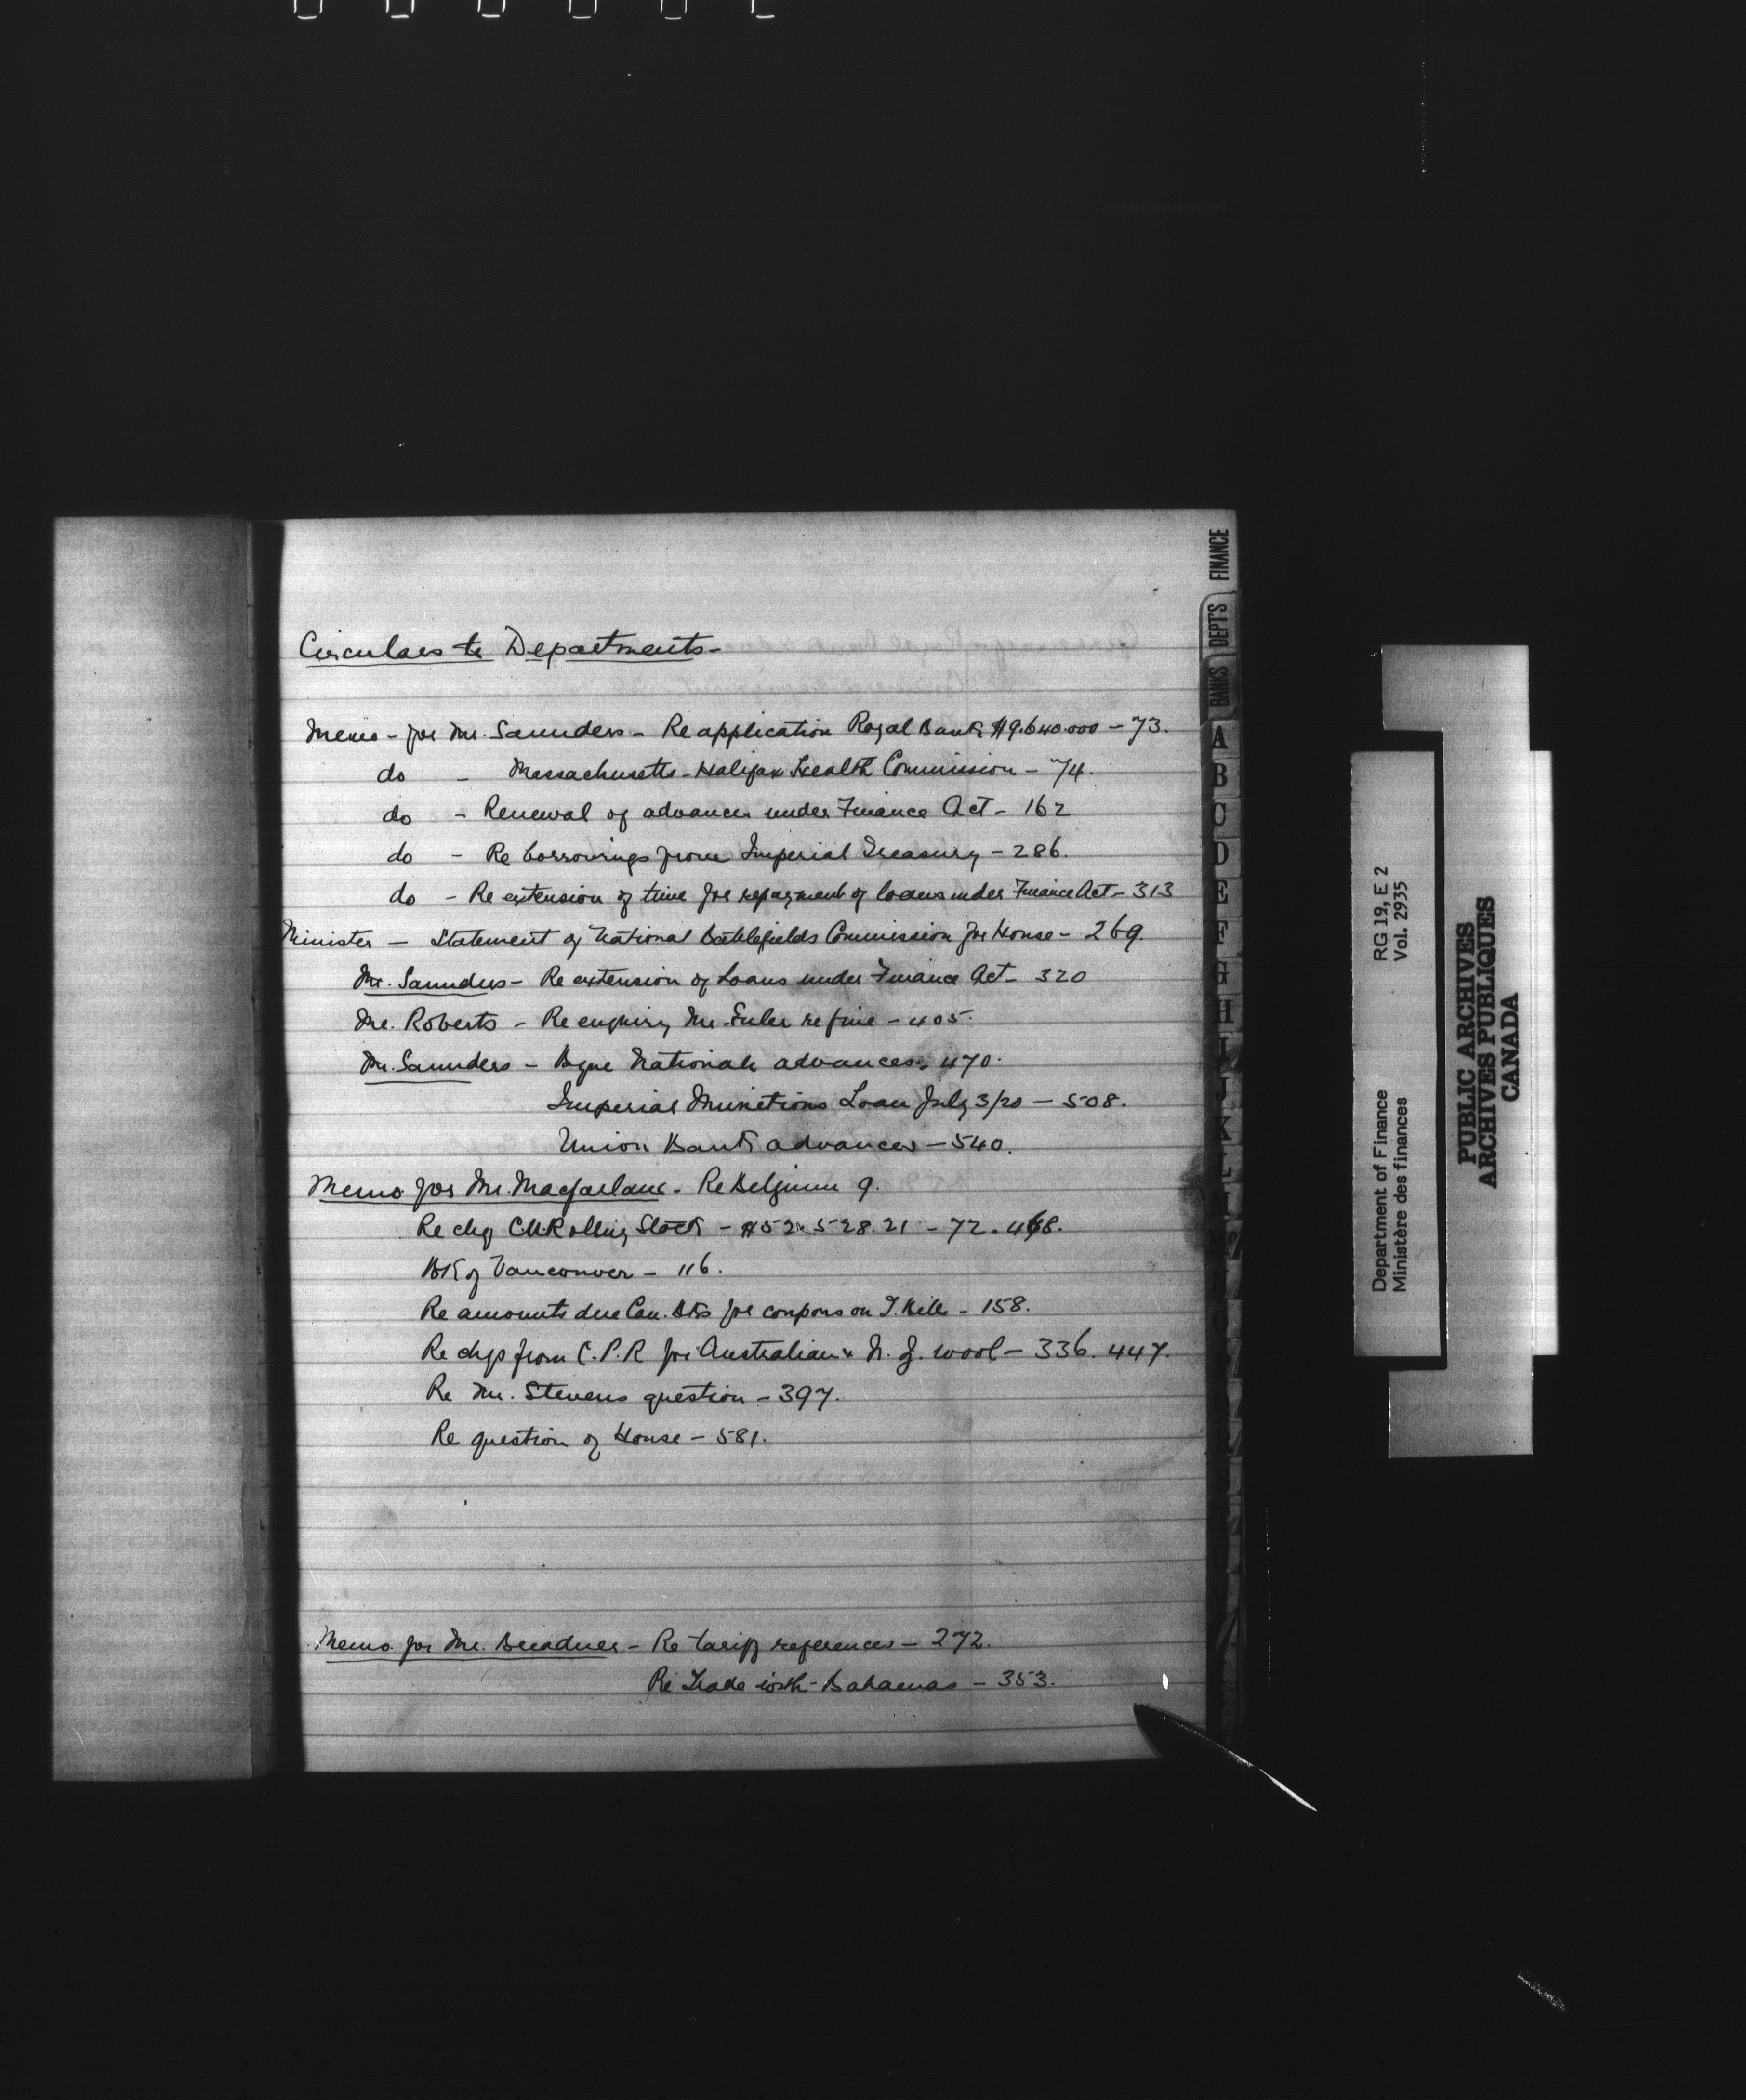 Circulars to Departments-
Memo - for Mr. Saunders - Re application Royal Bank $9.640.000 - 73.
do - Massachusetts-Halifax Health Commission - 74.
do - Renewal of advances under Finance Act - 162
do - Re borrowings from Imperial Treasury - 286.
do - Re extension of time for repayment of loans under Finance Act - 313
Minister - Statement of National Battlefields Commission for House - 269.
Mr. Saunders - Re extension of Loans under Finance Act - 320
Mr. Roberts - Re enquiry Mr. Euler re fine - 405.
Mr. Saunders - Bque Nationale advances, 470.
Imperial Munitions Loan July 3/20 - 508.
Union Bank advances - 540.
Memo for Mr. Macfarlane. Re Belgium 9.
Re chq C.N.Rolling Stock - $52.528.21 - 72. 468.
Bk of Vancouver - 116.
Re amounts due Can. Bks for coupons on T. Bills - 158.
Re chqs from C.P.R for Australian & N.Z. wool - 336. 447.
Re Mr. Stevens question - 397.
Re question of House - 581.
Memo for Mr. Breadner - Re tariff references - 272.
Re Trade with Bahamas - 353.
FINANCE
DEPT'S
BANKS
A
B
C
D
E
F
G
H
I
J
K
Department of Finance RG 19, E 2
Ministère des finances Vol. 2935
PUBLIC ARCHIVES
ARCHIVES PUBLIQUES
CANADA